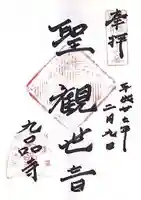 奉拝
平成廿六年
二月九日
聖観世音
九品寺